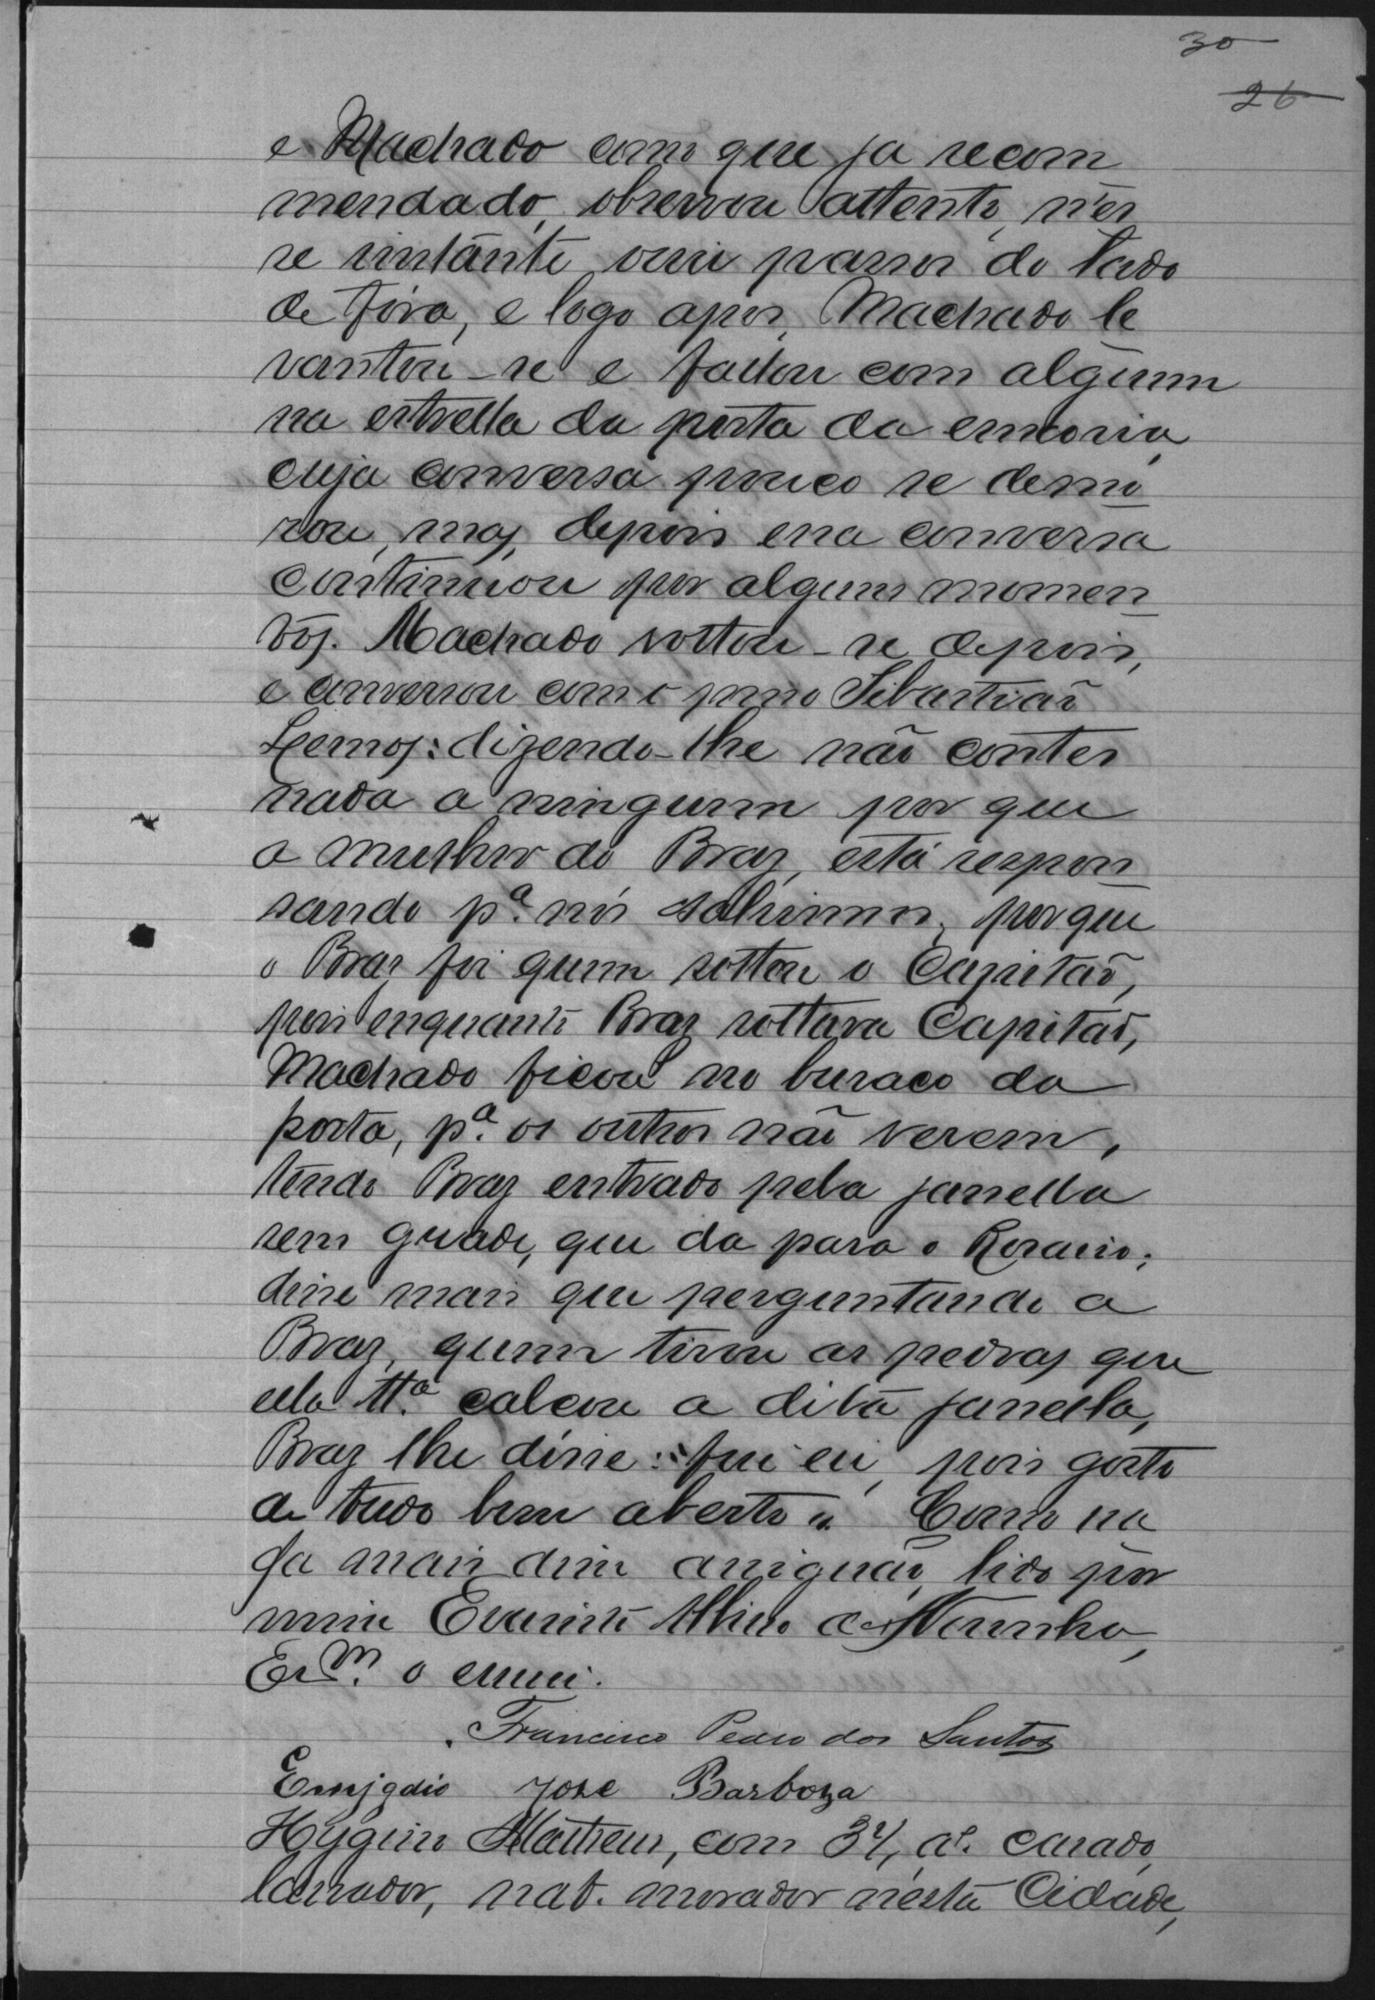 30
26
e Machado como que ja recom
mendado, observou attento, n'es
se instante ouviu passos do lado
de fóra, e logo apos, Machado le
vantou-se e fallou com alguem
na estrella da porta da enxovia,
cuja conversa pouco se demo
rou, mas, depois essa conversa
continuou por alguns momen
tos. Machado voltou-se depois,
e conversou com o preso Sibastião
Lemos: dizendo-lhe não contes
nada a ninguem por que
a mulher do Braz, está respon
sando pª. nós sahirmos, porque
o Braz foi quem soltou o Capitão,
pois enquanto Braz soltava Capitão,
Machado ficou no buraco da
porta, pª. os outros não verem,
tendo Braz entrado pela janella
sem grade, que da para o Rosario;
disse mais que perguntando a
Braz, quem tirou as pedras que
ella ttª. calcou a dita janella,
Braz lhe disse: "fui eu, pois gosto
de tudo bem aberto". Como na
da mais disse assignão, lido por
mim Evaristo Albino de Noronha,
Esm. o escrevi.
Francisco Pedro dos Santos
Emjgdio Jose Barboza
Hygino Matheus, com 34, aˢ. casado,
lavrador, nat. morador nesta Cidade,